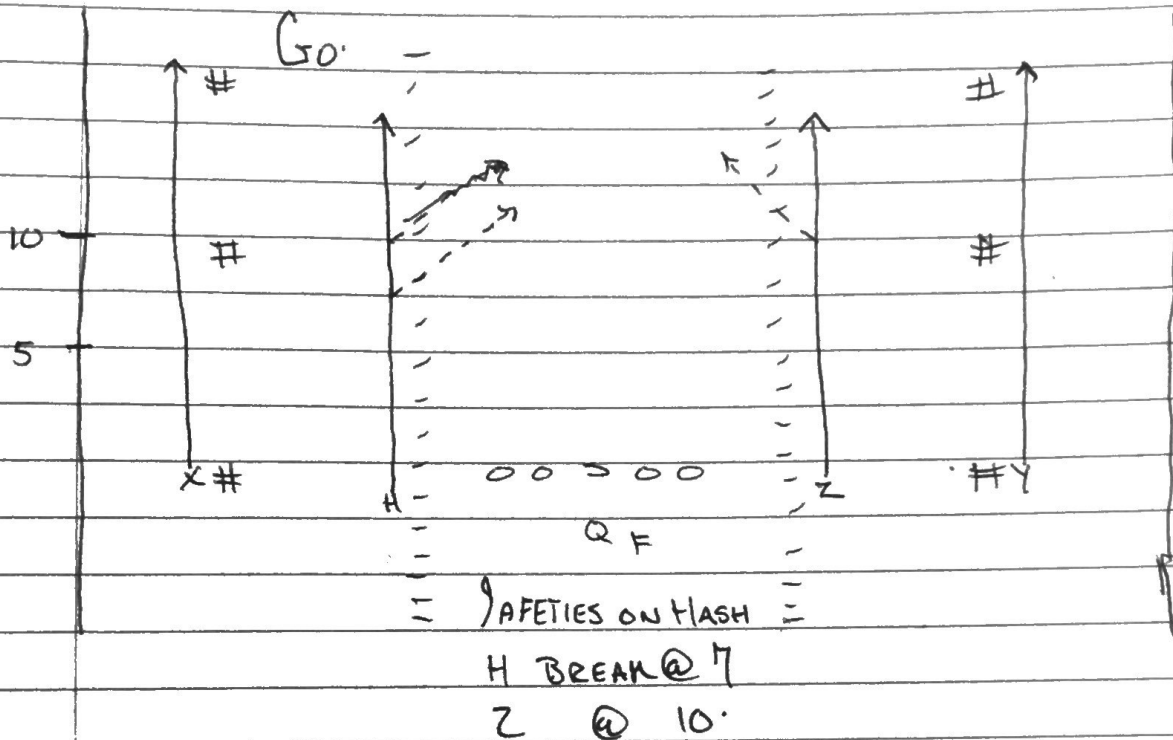 Go.
# #
10 # #
5
X # O O O O O # Y
H Z
Q F
SAFETIES ON HASH
H BREAK @ 7
Z @ 10.